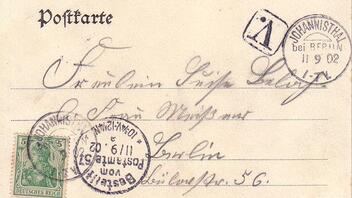 Postkarte
V.
JOHANNISTHAL
bei BERLIN
11 9 02
Fräulein Luise
b. Frau Meißner
Berlin
Bülowstr. 56.
5
DEUTSCHES REICH
JOHANNISTHAL
Bestellt
vom
Postamte 57
11/9.02